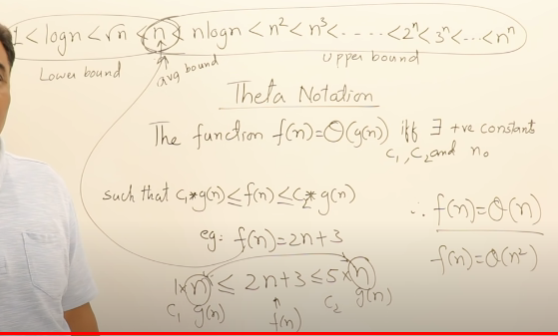 1 < logn < √n < n < nlogn < n² < n³ < ..... < 2ⁿ < 3ⁿ < ... < nⁿ
Lower bound avg bound Upper bound
Theta Notation
The function f(n)=Θ(g(n)) iff ∃ +ve constants
c₁, c₂ and n₀
such that c₁*g(n) ≤ f(n) ≤ c₂* g(n)
eg: f(n)=2n+3
1×n ≤ 2n+3 ≤ 5×n
c₁ g(n) f(n) c₂ g(n)
∴ f(n)=Θ(n)
f(n)=Θ(n²)